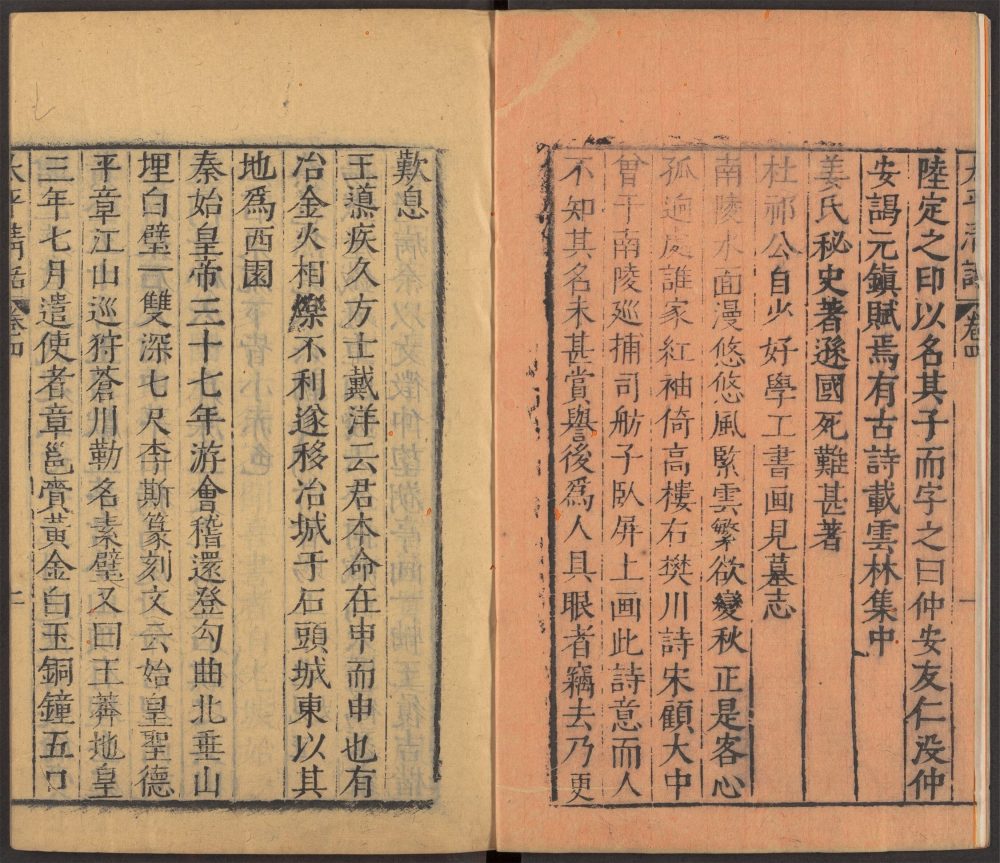 太平清話 卷四 一
陸定之印以名其子而字之曰仲安友仁没仲
安謁元鎮賦焉有古詩載雲林集中
姜氏秘史著遜國死難甚著
杜祁公自少好學工書画見墓志
南陵水面漫悠悠風緊雲繁欲變秋正是客心
孤逈處誰家紅袖倚高樓右樊川詩宋顧大中
曾于南陵廵捕司舫子卧屏上画此詩意而人
不知其名未甚賞譽後爲人具眼者竊去乃更
歎息
王導疾久方士戴洋云君本命在申而申也有
冶金火相爍不利遂移冶城于石頭城東以其
地爲西園
秦始皇帝三十七年游會稽還登勾曲北垂山
埋白璧一雙深七尺李斯篆刻文云始皇聖德
平章江山巡狩蒼川勒名素璧又曰王莽地皇
三年七月遣使者章邕賫黃金白玉銅鐘五口
太平清話 卷四